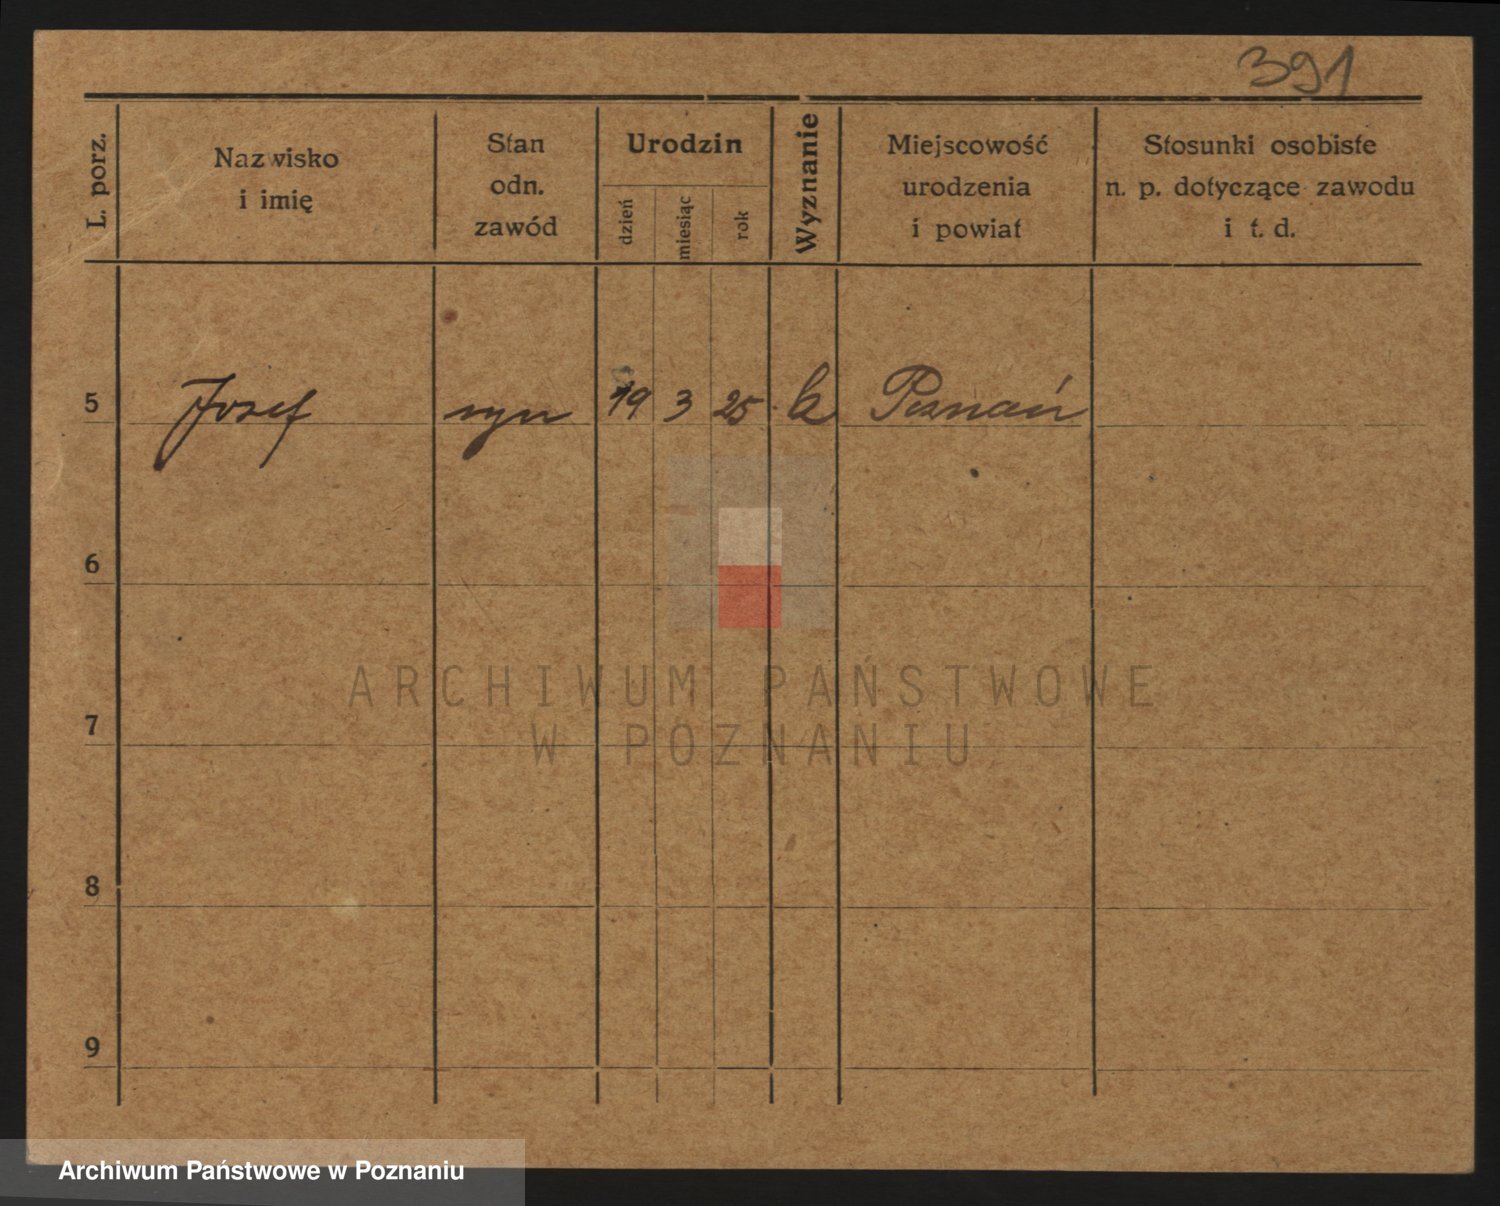 391
L. porz.
Nazwisko
i imię
Stan
odn.
zawód
Urodzin
dzień
miesiąc
rok
Wyznanie
Miejscowość
urodzenia
i powiat
Stosunki osobiste
n. p. dotyczące zawodu
i t. d.
5 Josef syn 19 3 25 k Poznań
6
7
8
9
ARCHIWUM PAŃSTWOWE
W POZNANIU
Archiwum Państwowe w Poznaniu